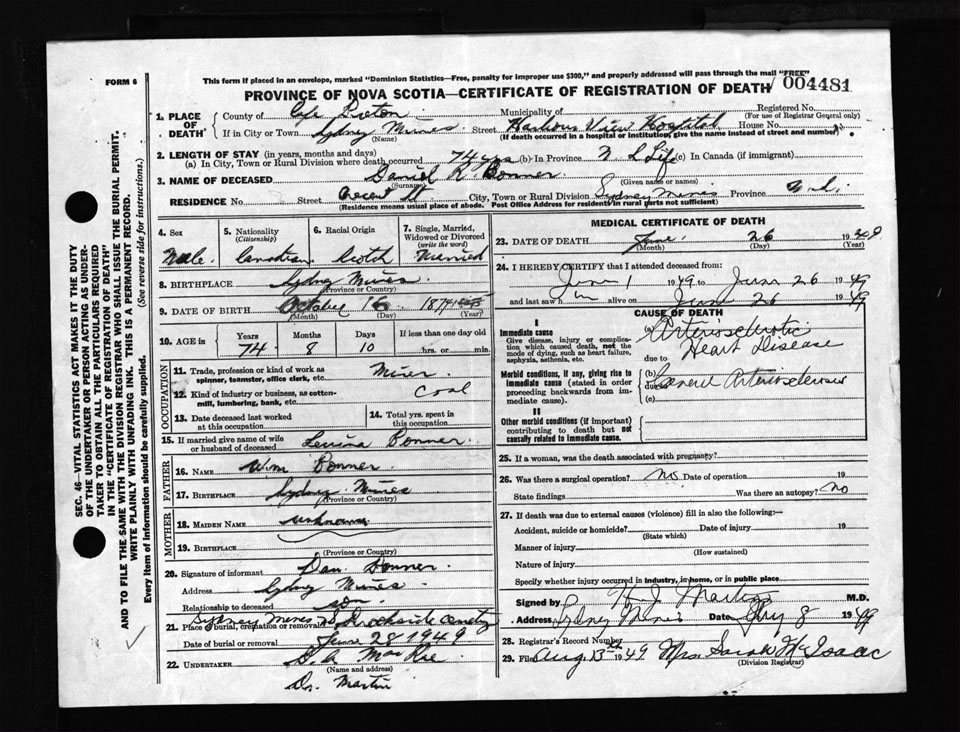 FORM 6
This form if placed in an envelope, marked "Dominion Statistics—Free, penalty for improper use $300," and properly addressed will pass through the mail "FREE"
004481
PROVINCE OF NOVA SCOTIA—CERTIFICATE OF REGISTRATION OF DEATH
1. PLACE OF DEATH
County of Cape Breton Municipality of Registered No.
(For use of Registrar General only)
If in City or Town Sydney Mines Street Harbour View Hospital House No.
(Name) (If death occurred in a hospital or institution, give the name instead of street and number)
2. LENGTH OF STAY (in years, months and days)
(a) In City, Town or Rural Division where death occurred 74 yrs (b) In Province Life (c) In Canada (if immigrant)
3. NAME OF DECEASED Daniel R Bonner
(Surname) (Given name or names)
RESIDENCE No. Street St City, Town or Rural Division Sydney Mines Province N.S.
(Residence means usual place of abode. Post Office Address for residents in rural parts not sufficient)
4. Sex 5. Nationality (Citizenship) 6. Racial Origin 7. Single, Married, Widowed or Divorced (write the word)
Male Canadian Scotch Married
8. BIRTHPLACE Sydney Mines
(Province or Country)
9. DATE OF BIRTH October 16 1874
(Month) (Day) (Year)
10. AGE in Years Months Days If less than one day old
74 8 10 hrs. or min.
OCCUPATION
11. Trade, profession or kind of work as spinner, teamster, office clerk, etc. Miner
12. Kind of industry or business, as cotton-mill, lumbering, bank, etc. Coal
13. Date deceased last worked at this occupation
14. Total yrs. spent in this occupation
15. If married give name of wife or husband of deceased Bonner
FATHER
16. NAME Wm Bonner
17. BIRTHPLACE Sydney Mines
(Province or Country)
MOTHER
18. MAIDEN NAME unknown
19. BIRTHPLACE
(Province or Country)
20. Signature of informant Dan Bonner
Address Sydney Mines
Relationship to deceased son
21. Place of burial, cremation or removal Sydney Mines Brookside Cemetery
Date of burial or removal June 28 1949
22. UNDERTAKER
(Name and address)
Dr. Martin
MEDICAL CERTIFICATE OF DEATH
23. DATE OF DEATH June 26 1949
(Month) (Day) (Year)
24. I HEREBY CERTIFY that I attended deceased from:
June 1 1949 to June 26 1949
and last saw h im alive on June 26 1949
CAUSE OF DEATH
I
Immediate cause
Give disease, injury or complication which caused death, not the mode of dying, such as heart failure, asphyxia, asthenia, etc.
(a) Arteriosclerotic
Heart Disease
due to
Morbid conditions, if any, giving rise to immediate cause (stated in order proceeding backwards from immediate cause).
(b) General Arteriosclerosis
due to
(c)
II
Other morbid conditions (if important) contributing to death but not causally related to immediate cause.
25. If a woman, was the death associated with pregnancy?
26. Was there a surgical operation? No Date of operation 19
State findings Was there an autopsy? No
27. If death was due to external causes (violence) fill in also the following:—
Accident, suicide or homicide? Date of injury 19
(State which)
Manner of injury
(How sustained)
Nature of injury
Specify whether injury occurred in industry, in home, or in public place
Signed by Martin M.D.
Address Sydney Mines Date 8 1949
28. Registrar's Record Number
29. Filed Aug 13th 1949 Mrs Sarah McIsaac
(Division Registrar)
SEC. 46—VITAL STATISTICS ACT MAKES IT THE DUTY OF THE UNDERTAKER OR PERSON ACTING AS UNDERTAKER TO OBTAIN ALL THE PARTICULARS REQUIRED IN THE "CERTIFICATE OF REGISTRATION OF DEATH" AND TO FILE THE SAME WITH THE DIVISION REGISTRAR WHO SHALL ISSUE THE BURIAL PERMIT.
WRITE PLAINLY WITH UNFADING INK. THIS IS A PERMANENT RECORD.
Every item of information should be carefully supplied. (See reverse side for instructions.)